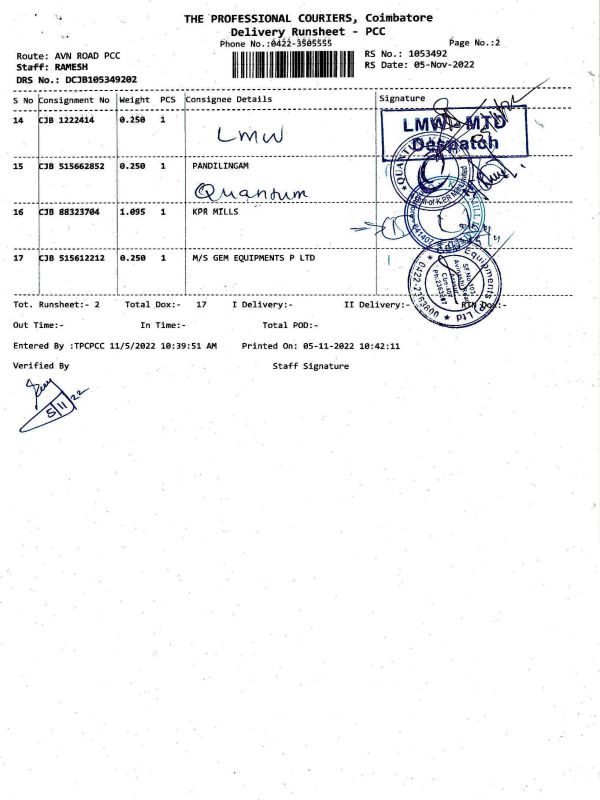 THE PROFESSIONAL COURIERS, Coimbatore
Delivery Runsheet - PCC
Phone No.:0422-3505555 Page No.:2
Route: AVN ROAD PCC RS No.: 1053492
Staff: RAMESH RS Date: 05-Nov-2022
DRS No.: DCJB105349202
S No Consignment No Weight PCS Consignee Details Signature
14 CJB 1222414 0.250 1
LMW
LMW - MTD
Despatch
15 CJB 515662852 0.250 1 PANDILINGAM
Quantum
16 CJB 88323704 1.095 1 KPR MILLS
17 CJB 515612212 0.250 1 M/S GEM EQUIPMENTS P LTD
Tot. Runsheet:- 2 Total Dox:- 17 I Delivery:- II Delivery:- RTN Dox:-
Out Time:- In Time:- Total POD:-
Entered By :TPCPCC 11/5/2022 10:39:51 AM Printed On: 05-11-2022 10:42:11
Verified By Staff Signature
5/11/22